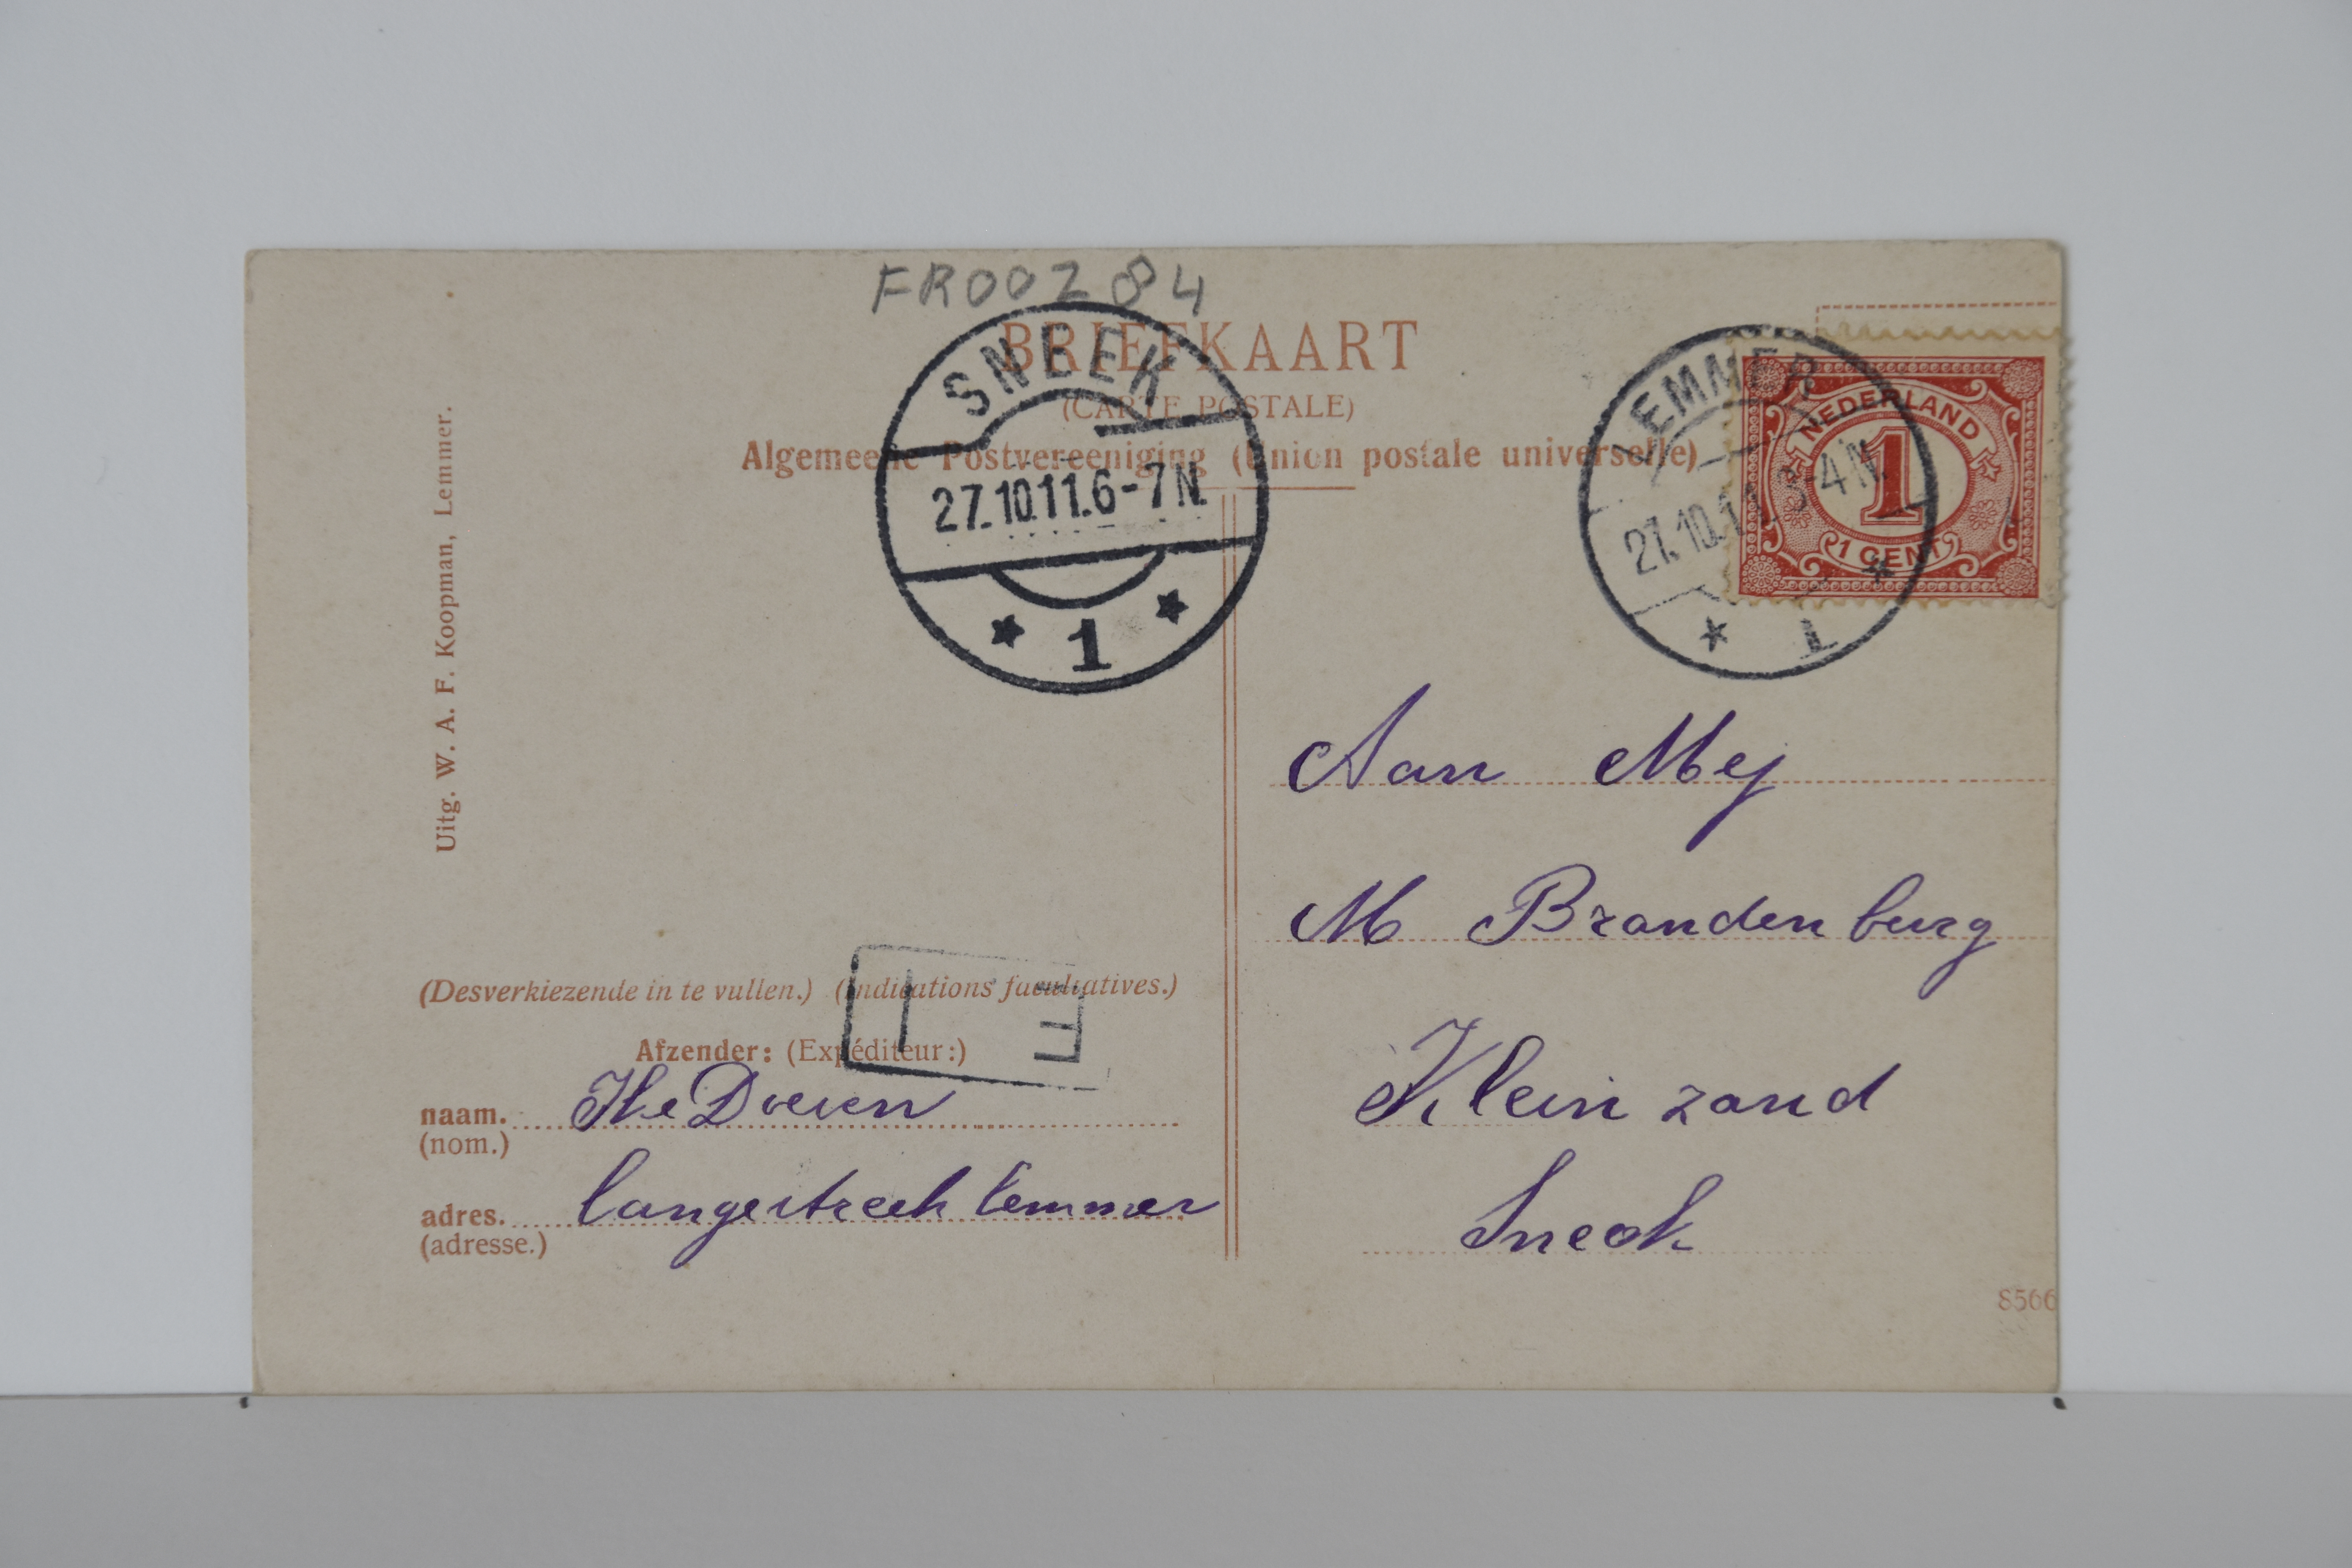 FR00284
BRIEFKAART
(CARTE POSTALE)
Algemeene Postvereeniging (Union postale universelle)
SNEEK
27.10.11.6-7N.
1
LEMMER
27.10.11.3-4N.
1
NEDERLAND
1
1 CENT
Uitg. W. A. F. Koopman, Lemmer.
Aan Mej
M Brandenburg
Klein zand
Sneek
(Desverkiezende in te vullen.) (Indications facultatives.)
Afzender: (Expéditeur:)
naam.
(nom.)
adres. Langestreek Lemmer
(adresse.)
8566